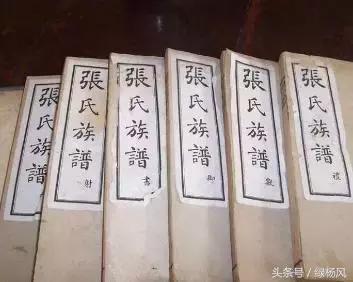 張氏族譜
張氏族譜
射
張氏族譜
書
張氏族譜
御
張氏族譜
數
張氏族譜
禮
头条号 / 绿杨风